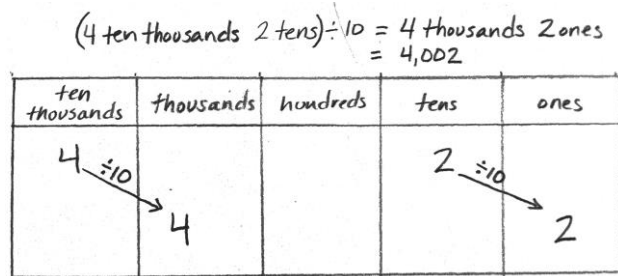 (4 ten thousands 2 tens) ÷ 10 = 4 thousands 2 ones
= 4,002
ten thousands thousands hundreds tens ones
4 ÷10 2 ÷10
4 2